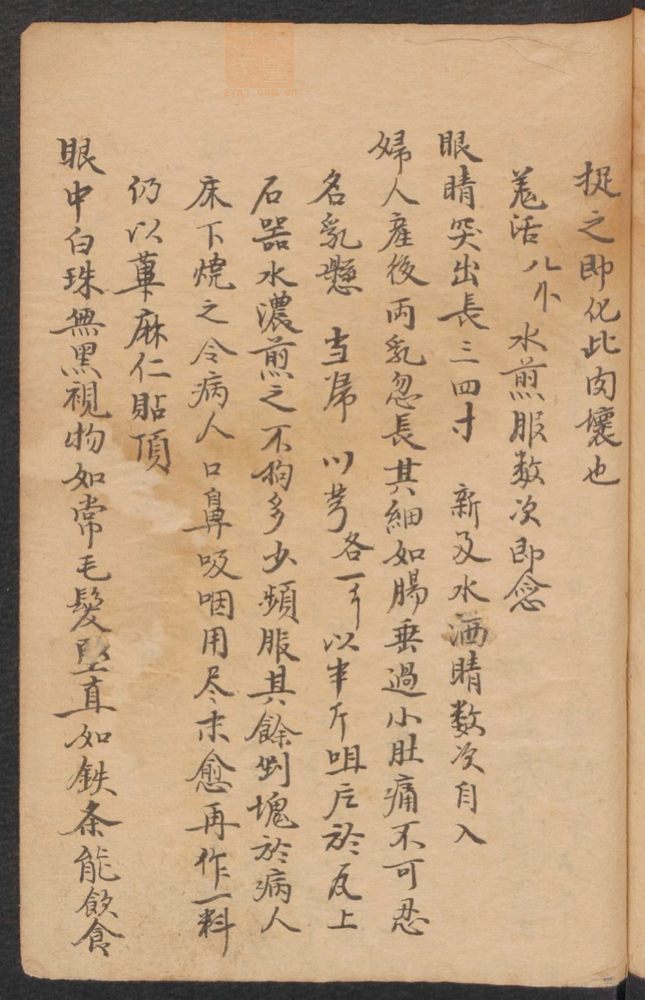 捉之即化此肉壞也
羗活八卜 水煎服数次即愈
眼睛突出長三四寸 新及水洒睛数次自入
婦人產後両乳忽長其細如腸垂過小肚痛不可忍
名乳懸 当帰 川芎各一斤以半斤咀后於瓦上
石器水濃煎之不拘多少頻服其餘剉塊於病人
床下燒之令病人口鼻吸咽用尽未愈再作一料
仍以萆麻仁貼頂
眼中白珠無黑視物如常毛髮堅直如鉄条能飲食